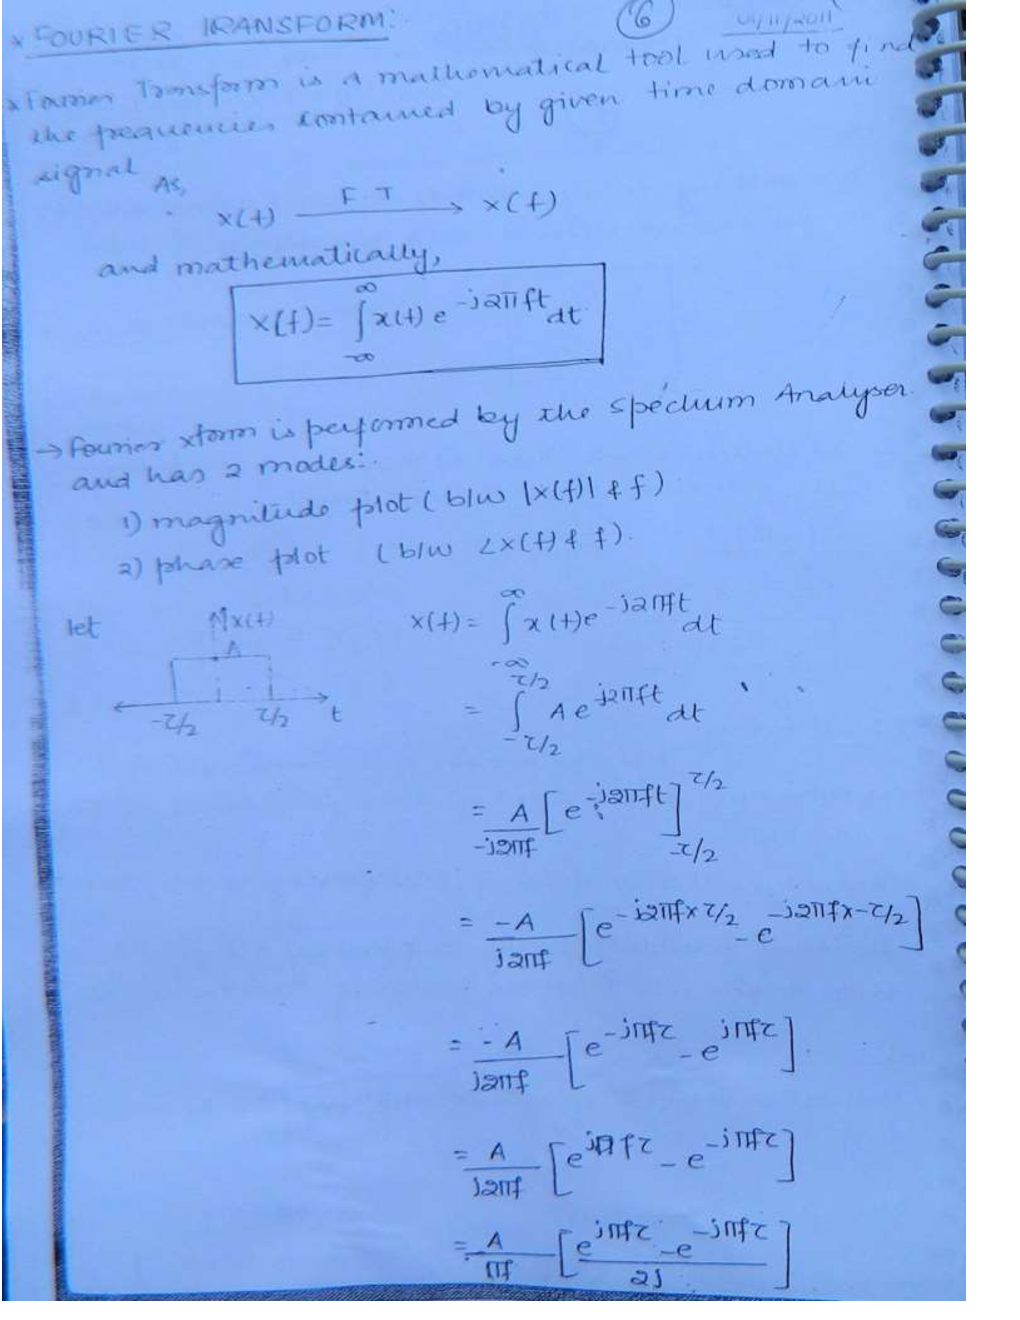 * FOURIER TRANSFORM:
6
01/11/2011
* Fourier Transform is a mathematical tool used to find
the frequencies contained by given time domain
signal
As,
x(t) F.T → x(f)
and mathematically,
x(f) = ∫_{-∞}^{∞} x(t) e^{-j2πft} dt
→ Fourier xform is performed by the spectrum Analyser.
and has 2 modes:
1) magnitude plot ( b/w |x(f)| & f )
2) phase plot ( b/w ∠x(f) & f ).
let
x(t)
A
-τ/2 τ/2 t
x(f) = ∫_{-∞}^{∞} x(t) e^{-j2πft} dt
= ∫_{-τ/2}^{τ/2} A e^{-j2πft} dt
= A/-j2πf [e^{-j2πft}]_{-τ/2}^{τ/2}
= -A/j2πf [e^{-j2πf×τ/2} - e^{-j2πf×-τ/2}]
= -A/j2πf [e^{-jπfτ} - e^{jπfτ}]
= A/j2πf [e^{jπfτ} - e^{-jπfτ}]
= A/πf [(e^{jπfτ} - e^{-jπfτ})/2j]